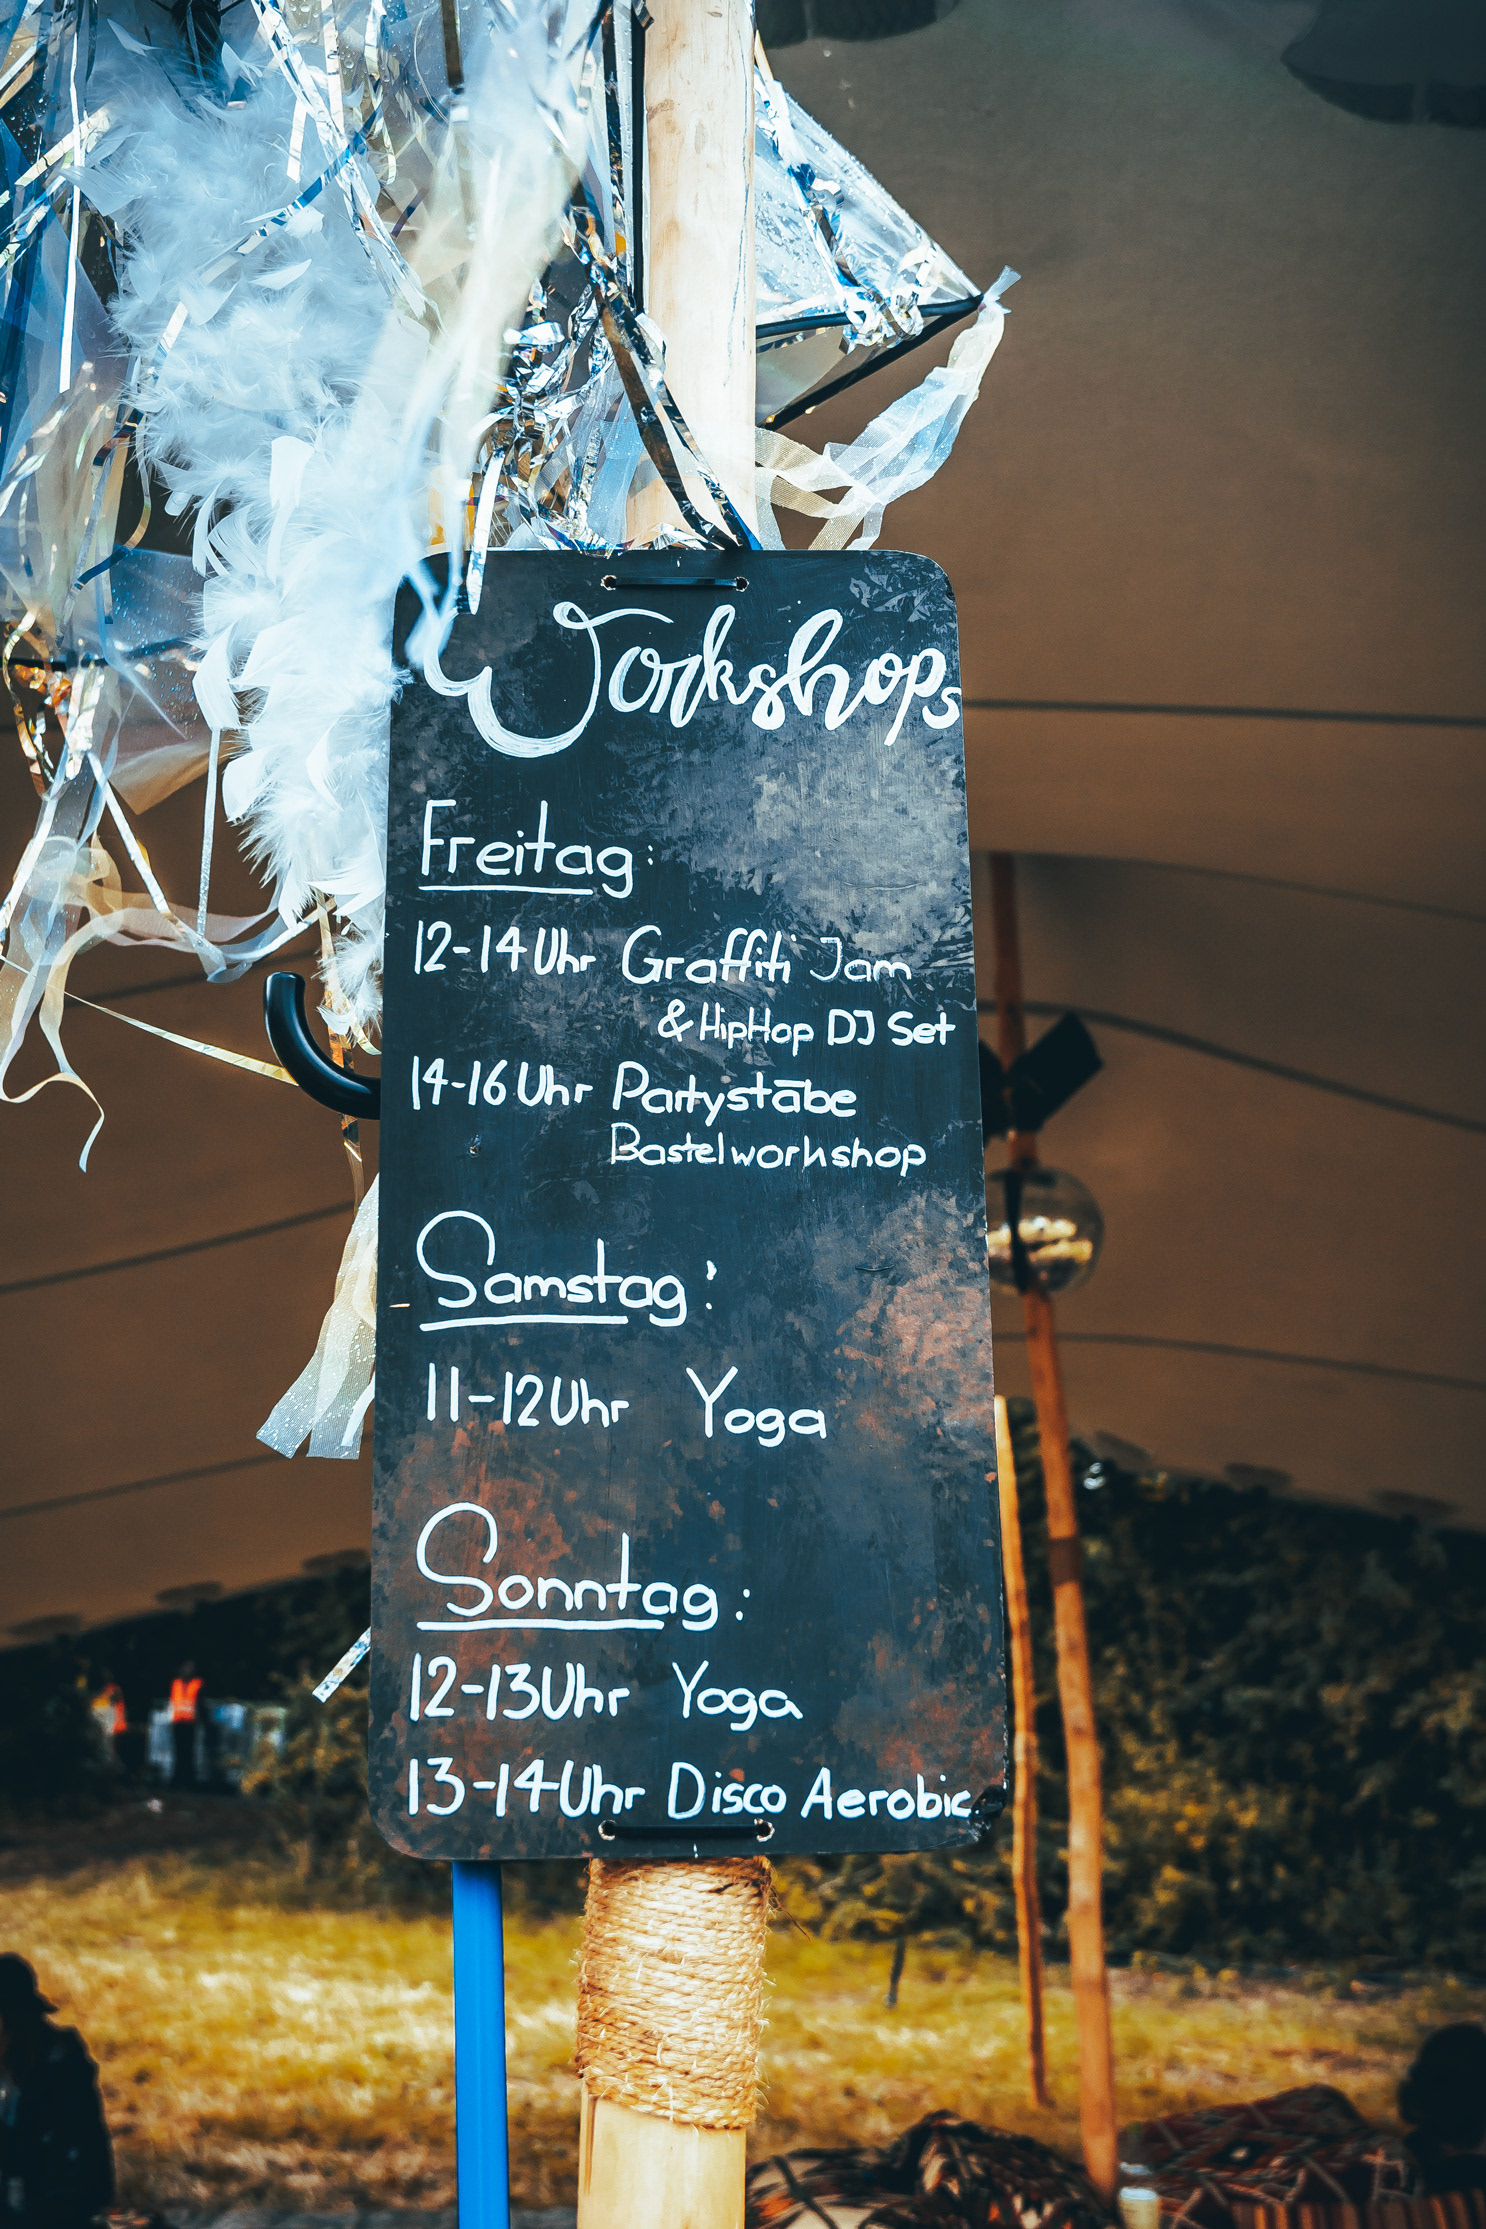 Workshops
Freitag:
12-14 Uhr Graffiti Jam
& HipHop DJ Set
14-16 Uhr Partystäbe
Bastelworkshop
Samstag:
11-12 Uhr Yoga
Sonntag:
12-13 Uhr Yoga
13-14 Uhr Disco Aerobic